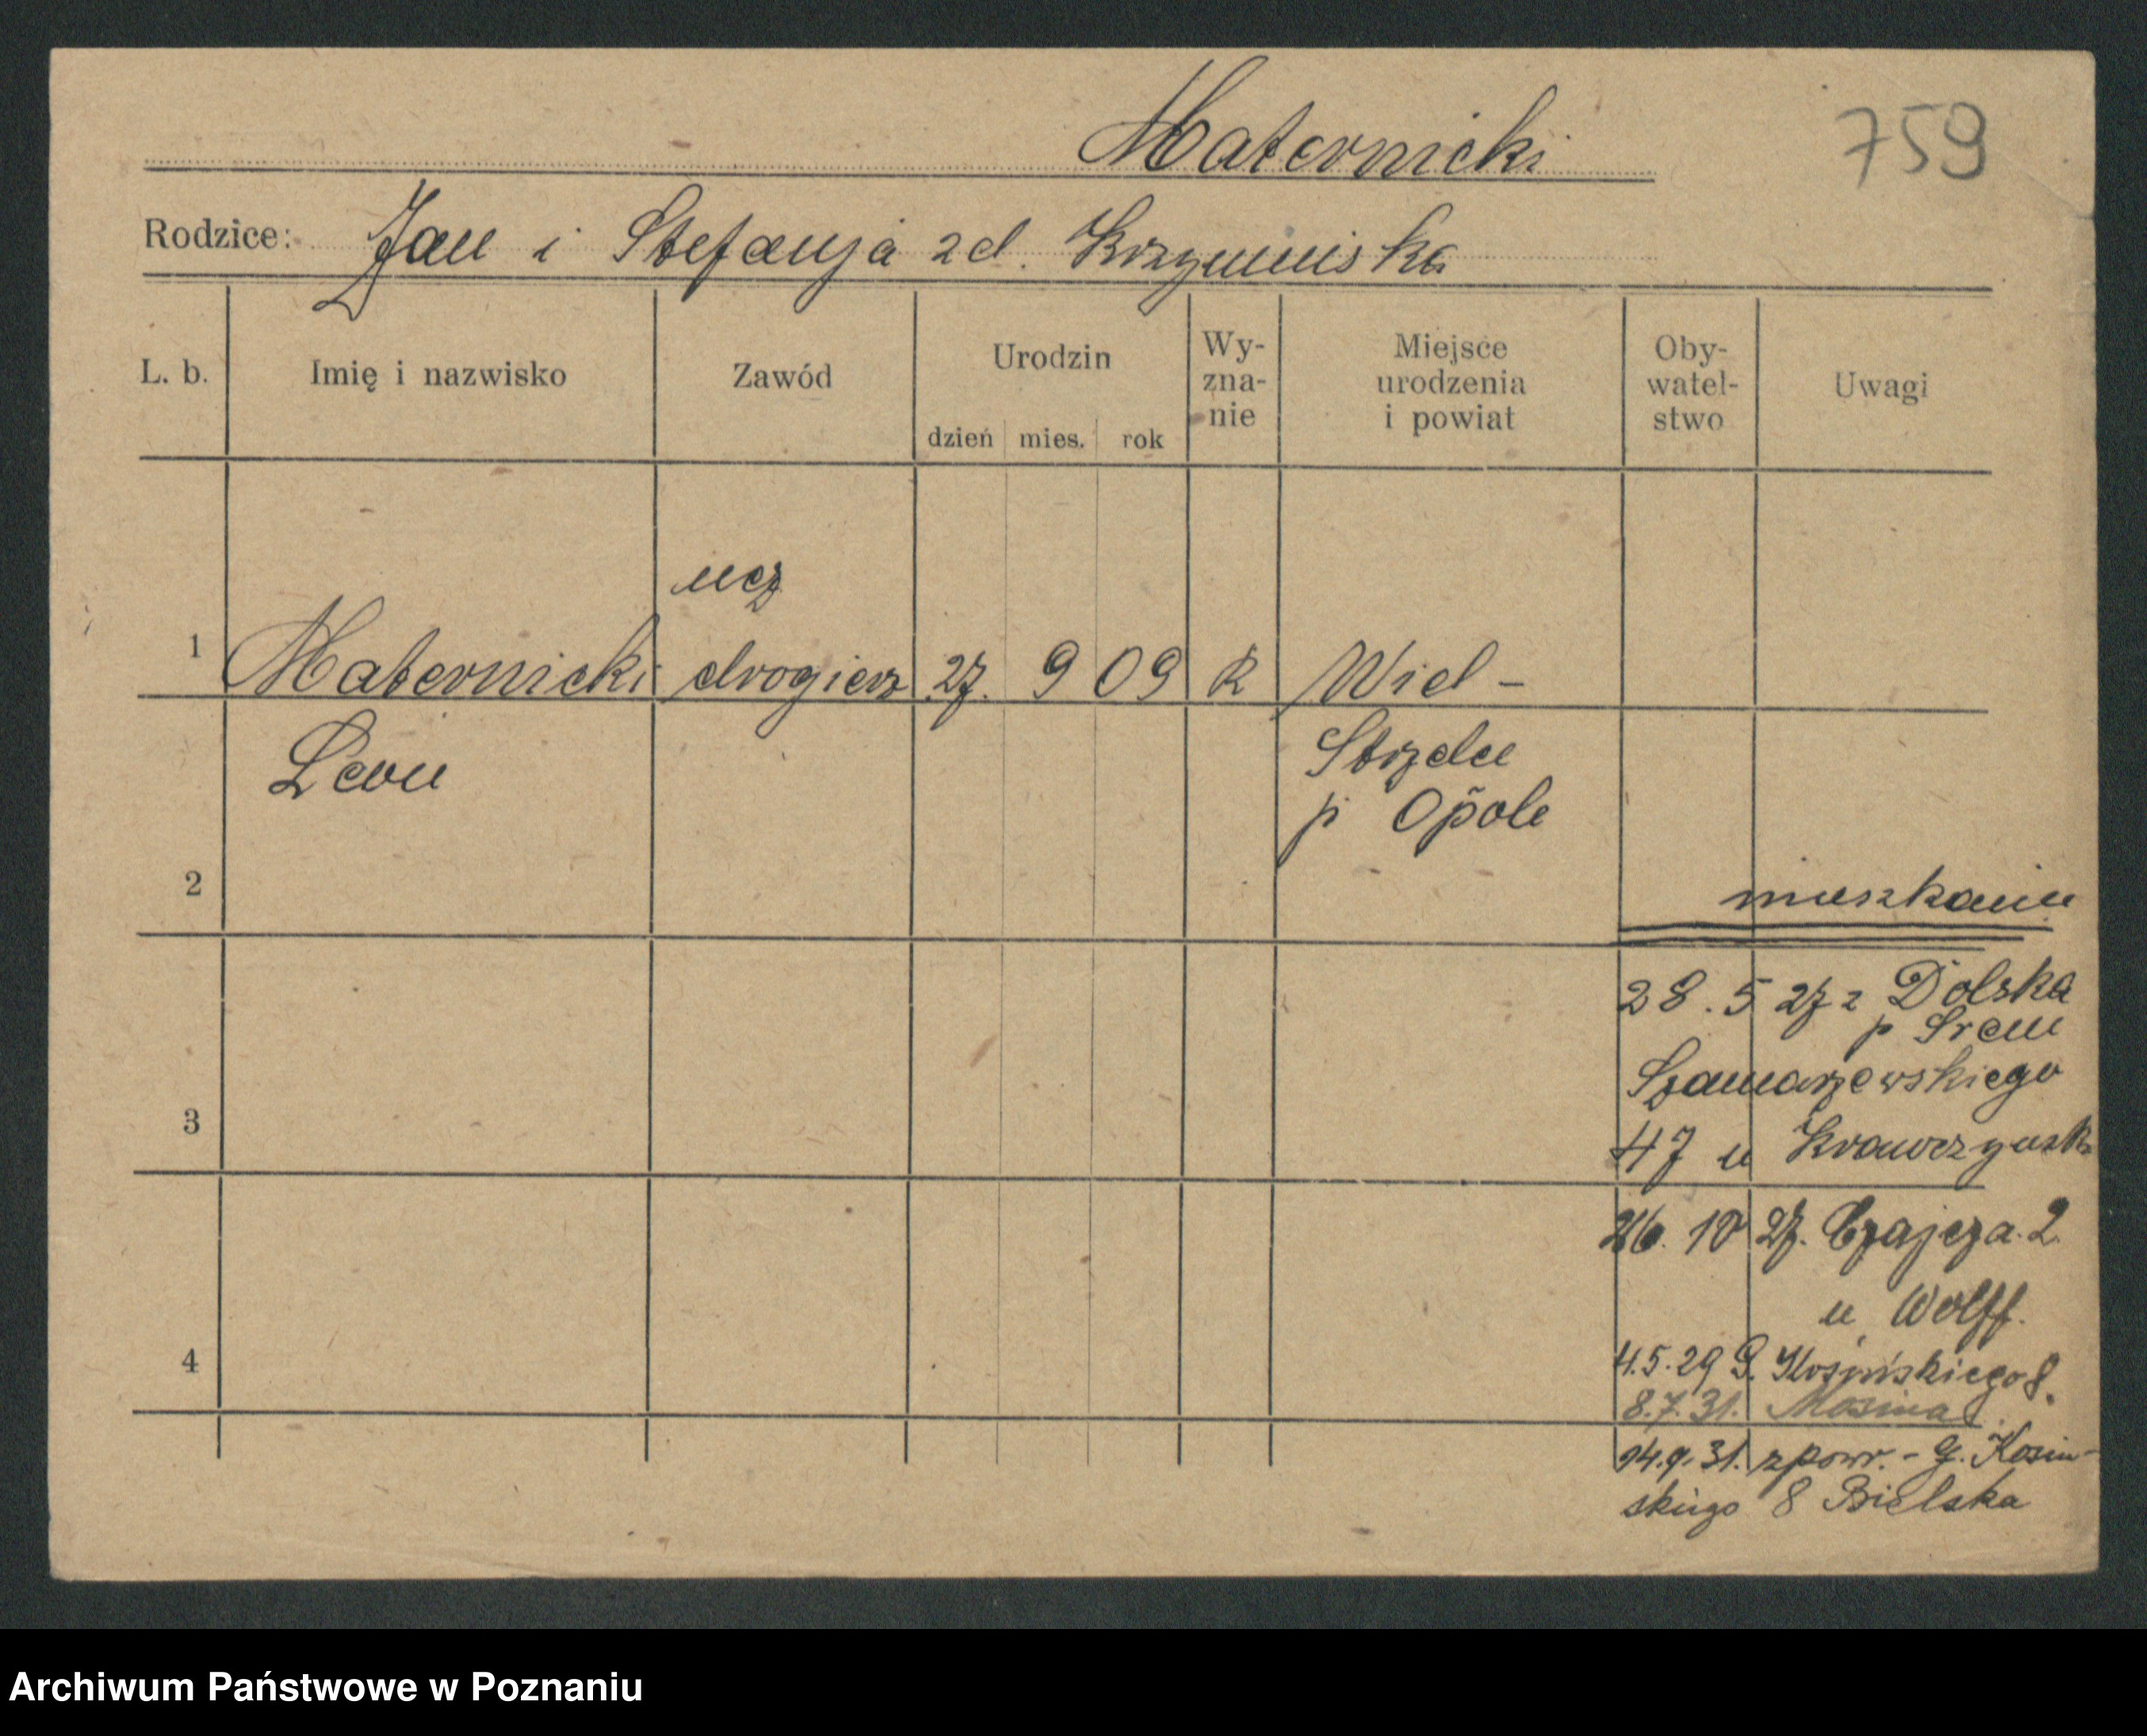 Maternicki
759
Rodzice: Jan i Stefanja zd. Krzyminiska
L. b.
Imię i nazwisko
Zawód
Urodzin
dzień mies. rok
Wy-
zna-
nie
Miejsce
urodzenia
i powiat
Oby-
watel-
stwo
Uwagi
ucz
1 Maternicki drogierz 27. 9 09 R Wiel -
Leon
Strzelce
p Opole
2
mieszkanie
28. 5 27 z Dolska
p Srem
Szamarzewskiego
3
47 u Krawczynsk
26. 10 27. Czajcza. 2.
u Wolff.
4
4.5.29 G. Kosińskiego 8.
8.7.31. Mosina
14.9.31. z powr. - G. Kosin-
skiego 8 Bielska
Archiwum Państwowe w Poznaniu